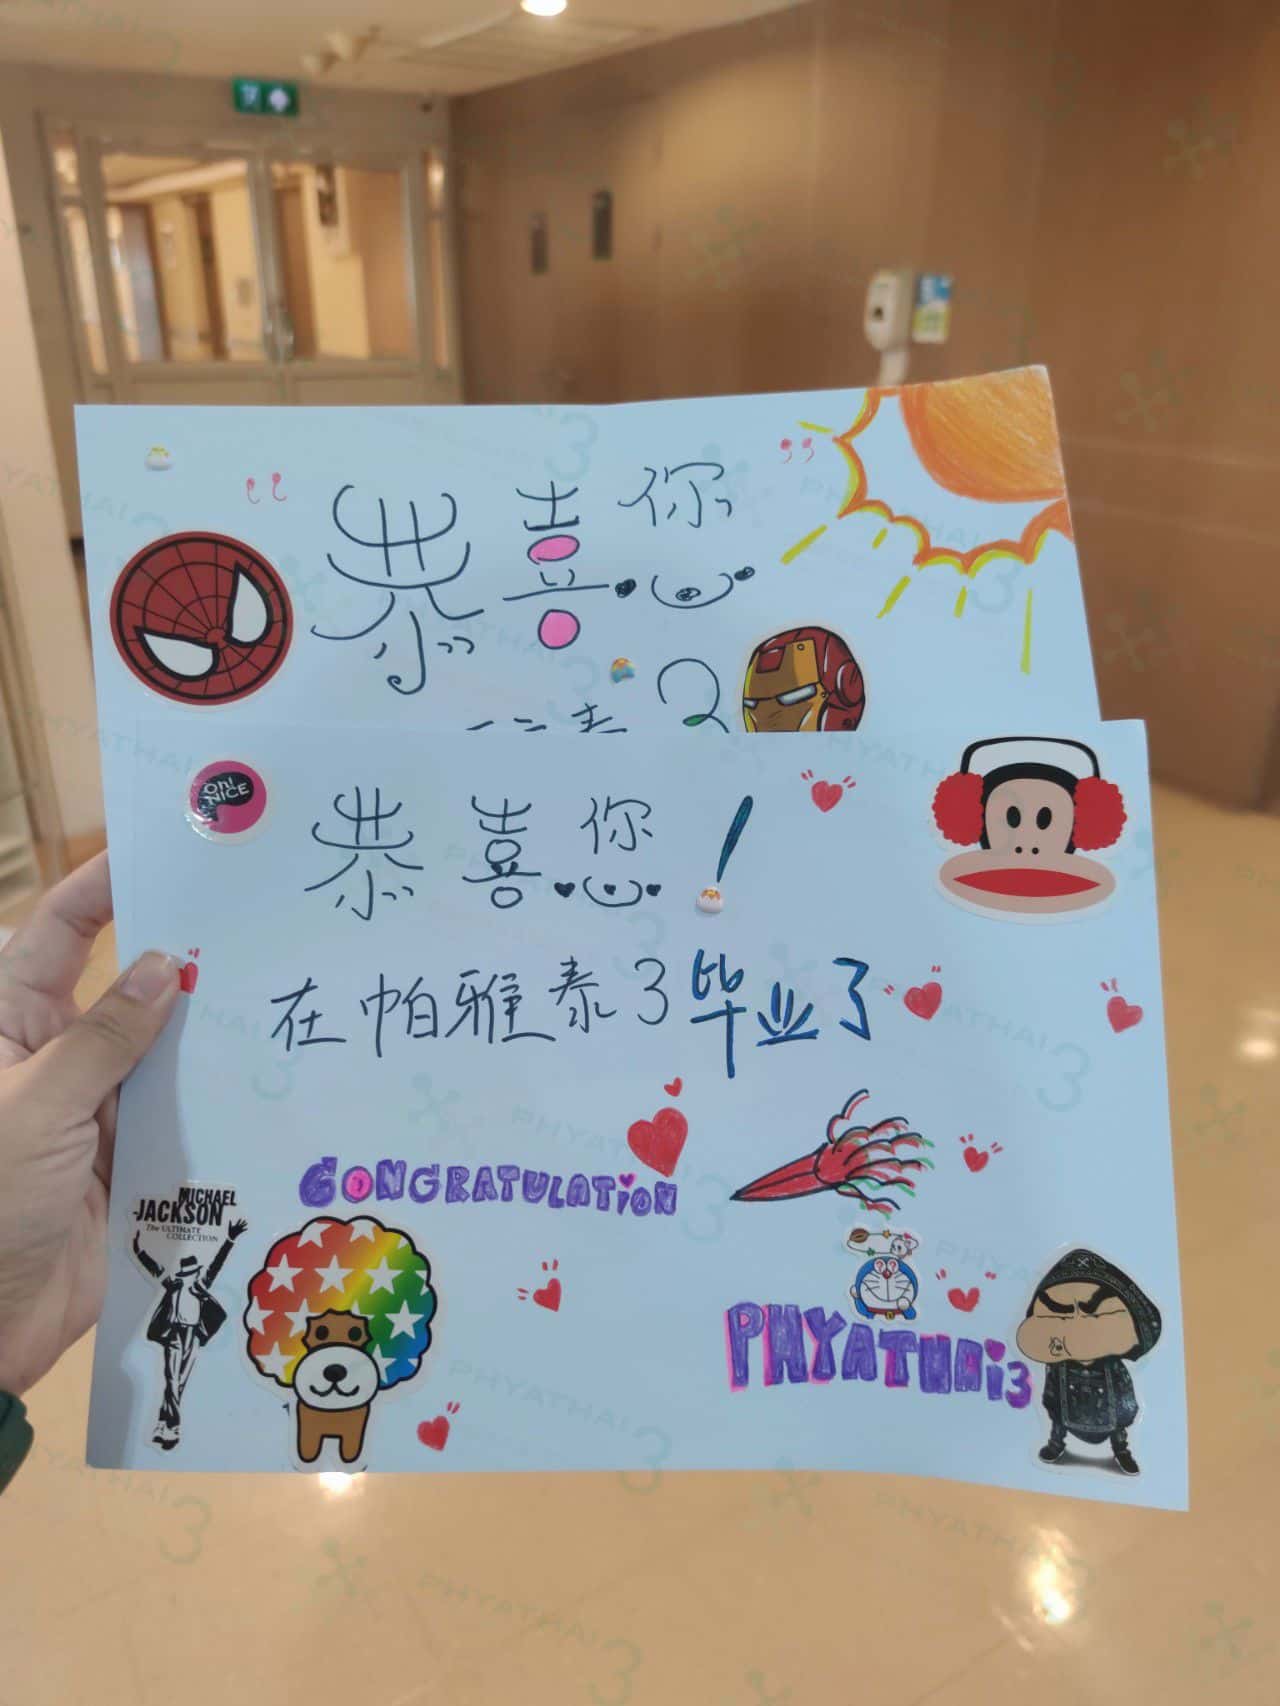 “恭喜你”
恭喜您!
在帕雅泰3毕业了
CONGRATULATiON
PHYATHAi3
OH! NICE
MICHAEL
JACKSON
The ULTIMATE
COLLECTION
PHYATHAI 3